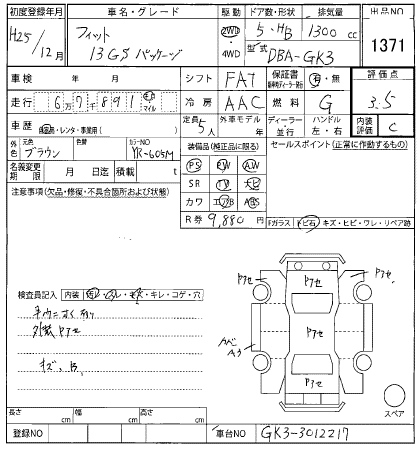 初度登録年月 車名・グレード 駆動 ドア数・形状 排気量 出品NO
H25/12月 フィット 13GSパッケージ 2WD・4WD 5・HB 1300cc 1371
型式 DBA-GK3
車検 年 月 シフト FAT 保証書 新車時ディーラー発行 有・無 評価点
走行 6万7千891 キロ マイル 冷房 AAC 燃料 G 3.5
車歴 自家用・レンタ・事業用( ) 定員 5人 外車モデル 年 ディーラー 並行 ハンドル 左・右 内装評価 C
外色 元色 ブラウン 色替 カラーNO YR-605M
装備品(純正品に限る) セールスポイント(正常に作動するもの)
名義変更期限 月 日迄 積載 t
PS PW AW
SR TV ナビ
カワ エアB ABS
R券 9,880円
注意事項(欠品・修復・不具合箇所および状態)
Fガラス トビ石・キズ・ヒビ・ワレ・リペア跡
検査員記入 内装 汚レ・スレ・キズ・キレ・コゲ・穴
外装Pアセ
キズ、B
Pアセ
Pアセ
Pアセ
Pアセ
Pアセ
スペア
長さ cm 幅 cm 高さ cm
登録NO 車台NO GK3-3012217